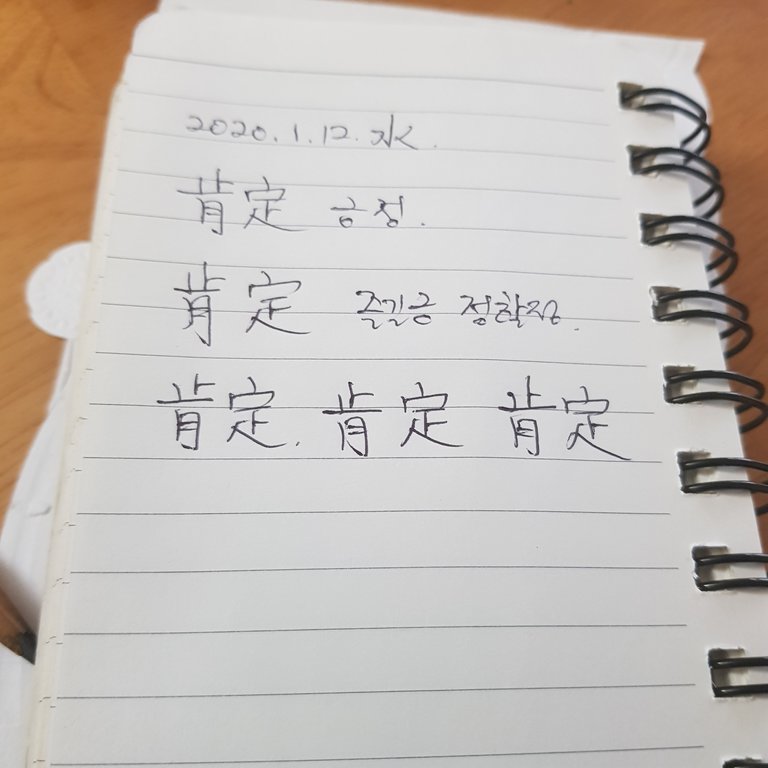 2020.1.12.水.
肯定 긍정.
肯定 즐길긍 정할정.
肯定. 肯定 肯定